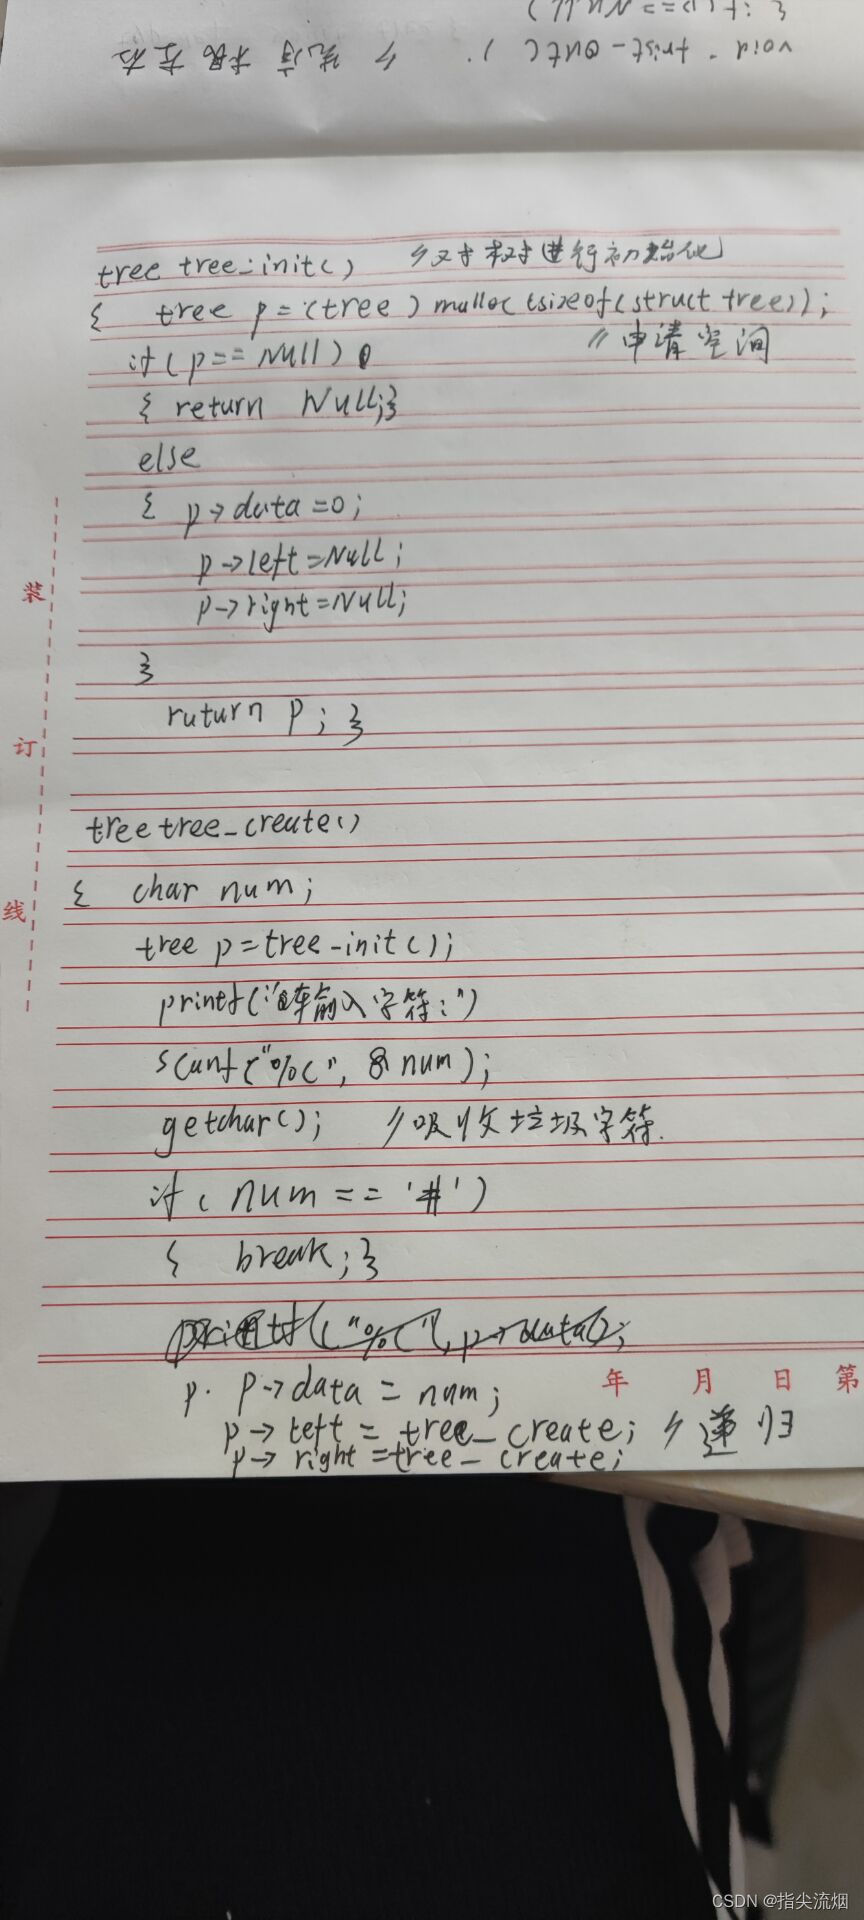 { if(p==Null)
void frist-out( ). // 先序 根左右
tree tree-init() //对树进行初始化
{ tree p=(tree)malloc(sizeof(struct tree));
if(p==Null) //申请空间
{ return Null;}
else
{ p→data=0;
p→left=Null;
p→right=Null;
}
ruturn p; }
tree tree_create()
{ char num;
tree p=tree-init();
printf("请输入字符:")
scanf("%c", &num);
getchar(); //吸收垃圾字符.
if( num == '#')
{ break;}
p. p→data = num;
p→left = tree_create; //递归
p→right =tree_create;
装
订
线
年 月 日 第
CSDN @指尖流烟